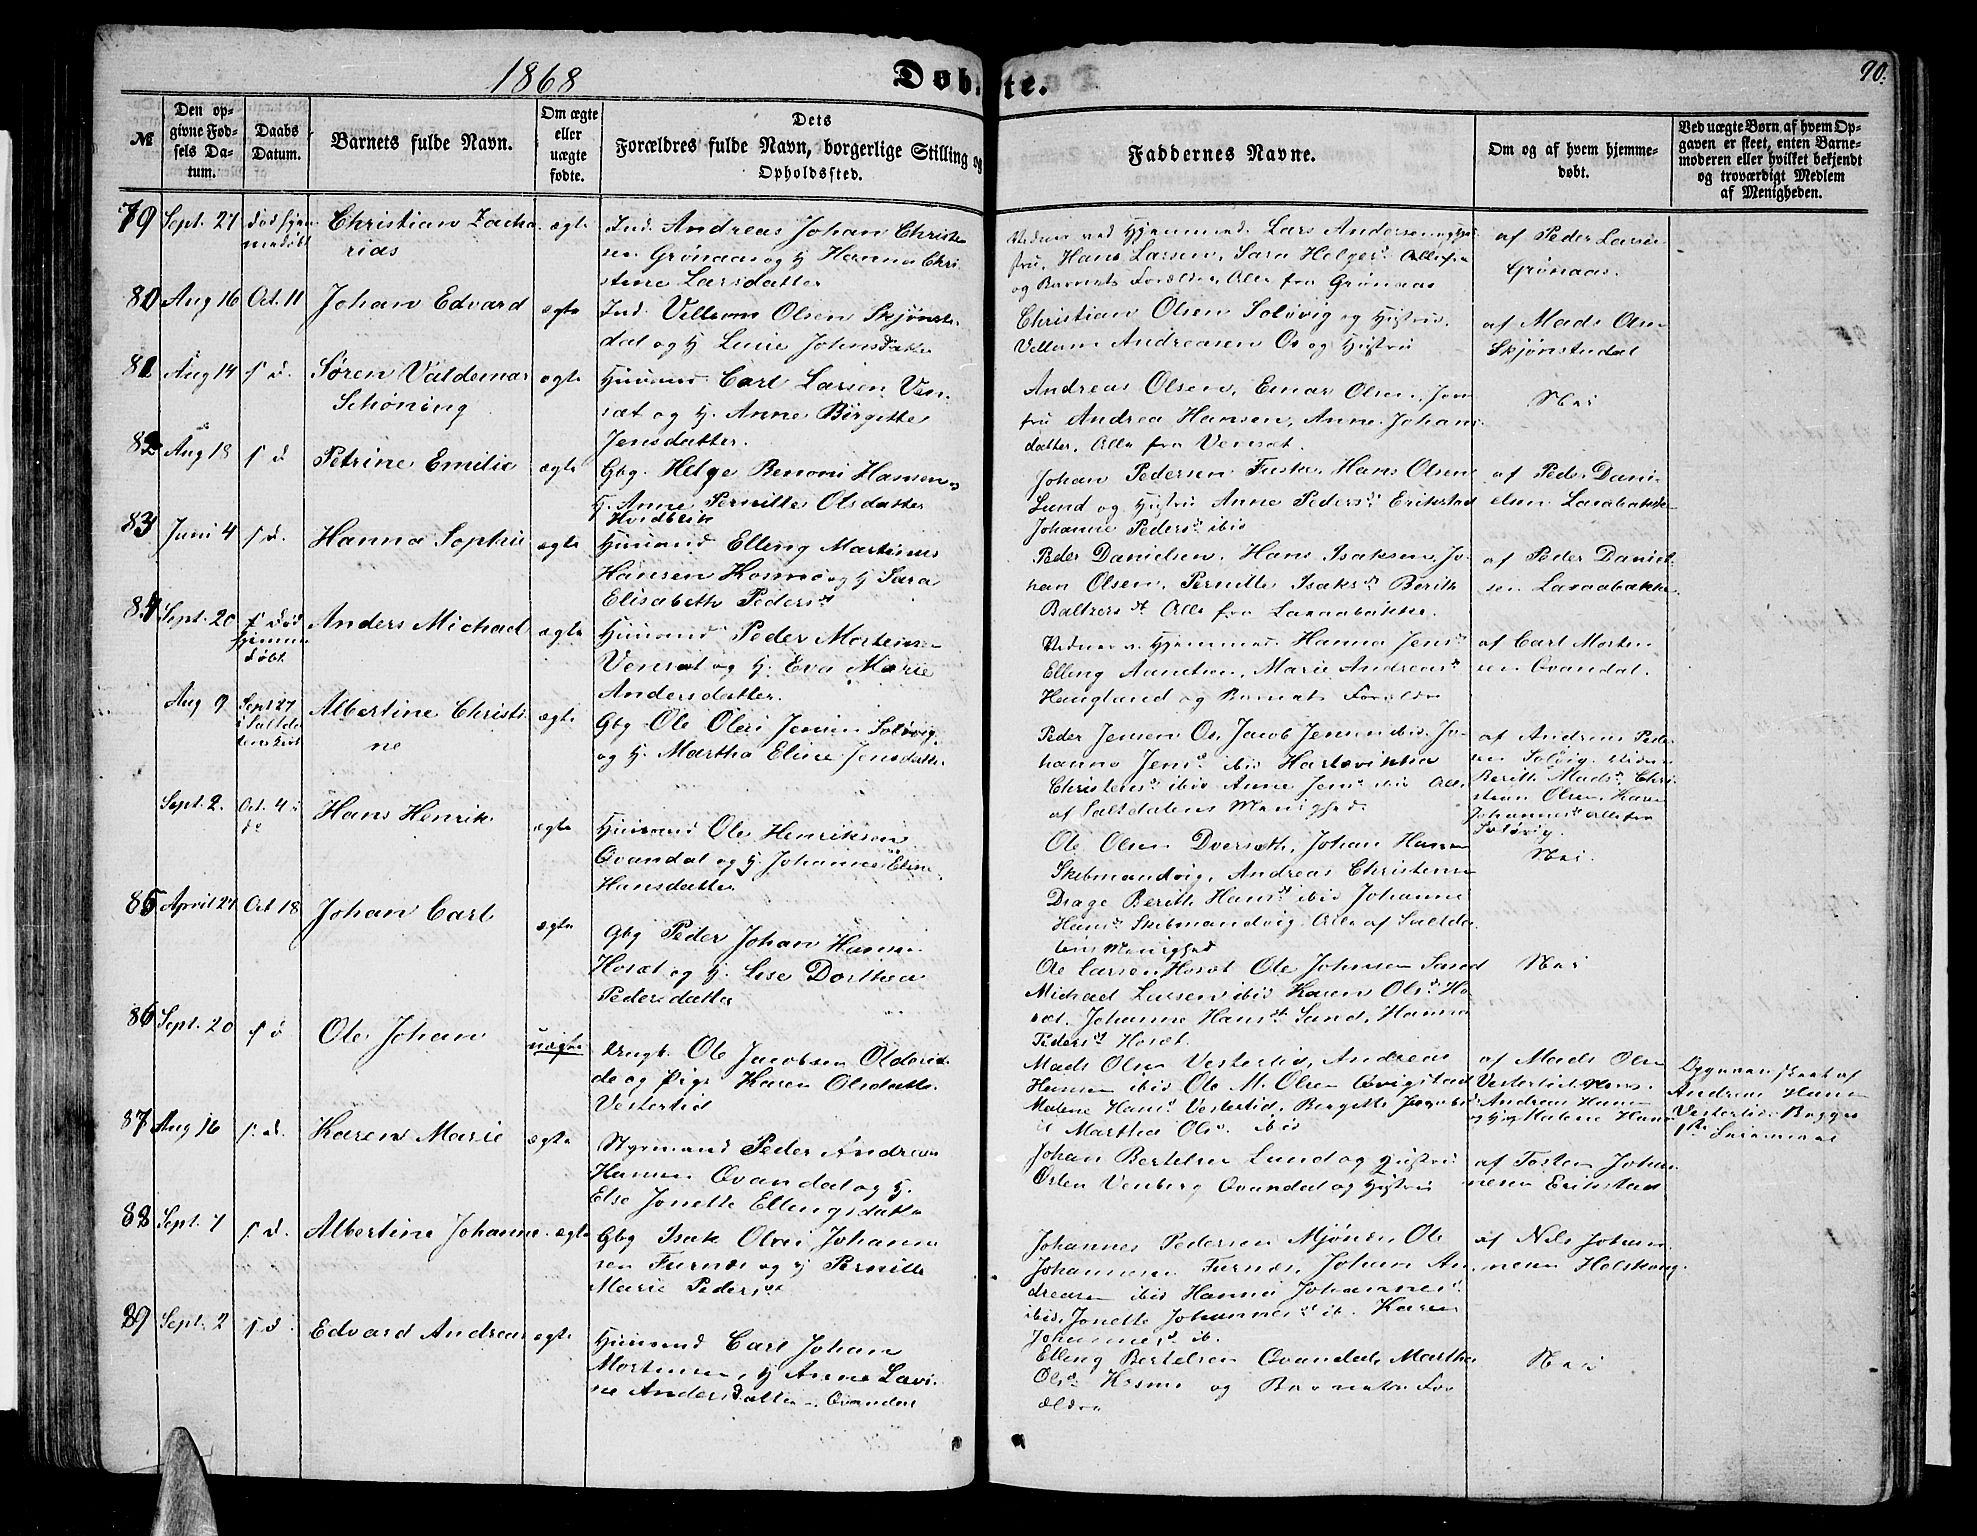 1868
Døbte.
90.
№
Den opgivne Fødsels Datum.
Daabs Datum.
Barnets fulde Navn.
Om ægte eller uægte fødte.
Dets Forældres fulde Navn, borgerlige Stilling og Opholdssted.
Faddernes Navne.
Om og af hvem hjemmedøbt.
Ved uægte Børn af hvem Opgaven er skeet, enten Barnemoderen eller hvilket bekjendt og troværdigt Medlem af Menigheden.
79 Sept. 21 død hjemmedøbt Christian Zacharias ægte
Ind. Andreas Johan Christensen Grønaas og H Hanna Christine Larsdatter
Lars Andersen
Hans Larsen, Sara Helgesd. Alle fra
og Barnets Forældre, Alle fra Grønaas
af Peder Larsen Grønaas.
80 Aug 16 Oct. 11 Johan Edvard ægte
Ind. Villum Olsen Skjønstudal og H Lucie Johnsdatter
Christian Olsen Soløvig og Hustru.
Villum Andreasen Os og Hustru
af Mads Olsen Skjønstudal
81 Aug 14 s d. Søren Valdemar Schøning ægte
Huusmd Carl Larsen Vensæt og H. Anne Birgitte Jensdatter.
Andreas Olsen, Einar Olsen, Jomfru Andrea Hansen, Anne Johansdatter, Alle fra Vensæt.
Nei
82 Aug 18 s d Petrine Emilie ægte
Gbg. Helge Benoni Hansen og H. Anne Pernille Olsdatter Hvidbrik
Johan Pedersen Fuske, Hans Olsen Lund og Hustru Anne Pedersd Erikstad
Johanne Pedersd ibid
af Peder Danielsen Laraabakke
83 Juni 4 s d. Hanna Sophie ægte
Huusmd Elling Martinus Hansen Kosmo og H Sara Elisabeth Pedersdt
Peder Danielsen, Hans Isaksen, Johan Olsen, Pernille Isaksdt Berith Baltzersdt Alle fra Laraabakke.
af Peder Danielsen Laraabakke
84 Sept. 20 død Hjemmedøbt Anders Michael ægte
Huusmd Peder Mortensen Vensæt og H. Eva Marie Andersdatter
Hanna Jensd
Elling Marie Andreasdt
Haugland og Barnets Forældre
af Carl Mortensen Qvandal.
Aug 9 Sept 27 i Saltdalens Kirke Albertine Christine ægte
Gbg. Ole Olai Jensen Soløvig og H. Martha Eline Jensdatter
Peder Jensen Os, Jacob Jensen ibid, Johanna Jensd. ibid
Christensd ibid Anne Jensd ibid Alle af Saltdalens Menighed.
af Andreas Pedersen Soløvig
Berith Madsd. Christian Olsen, Karen Johannesd Alle fra Soløvig.
Sept. 2. Oct. 4 i do Hans Henrik ægte
Huusmd Ole Henriksen Qvandal og H. Johanne Eline Hansdatter
Ole Olsen Dverseth, Johan Hansen Skibmandvig, Andreas Christensen
Drage Berith Hansdt ibid Johanne Hansd. Skibmandvig. Alle af Saltdalens Menighed
Nei.
85 April 24 Oct. 18 Johan Carl ægte
Gbg Peder Johan Hansen Hosæt og H. Lise Dorthea Pedersdatter
Ole Larsen Hosæt Ole Johnsen Sand
Michael Larsen ibid Karen Olsd Hosæt. Johanne Hansdt Sand, Hanna Pedersdt Hosæt.
Nei
86 Sept. 20 s d Ole Johan uægte
Ungk. Ole Jacobsen Oldereide og Pige Karen Olsdatter Vestertid
Mads Olsen Vestertid, Andreas Hansen ibid Ole M. Olsen
Malene Hansd Vestertid, Birgitte Jacobsd
Martha Olsd. ibid
af Mads Olsen Vestertid
Andreas Hansen og H Malene Hansd
Opgaven skeet af Andreas Hansen Vestertid.
87 Aug 16 s. d. Karen Marie ægte
Styrmand Peder Andreas Hansen Qvandal og H. Else Jonette Ellingsdatter
Johan Bertelsen Lund og Hustru
Osten Venberg Qvandal og Hustru
af Tosten Johannesen Erikstad
88 Sept. 7 s. d. Albertine Johanne ægte
Gbg Isak Olai Johannesen Furnes og H Pernille Marie Pedersdt
Johannes Pedersen Mjønes, Ole Johannesen Furnes, Johan Andreasen ibid Hanna Johannesd
ibid, Jonette Johannesd ib. Karen Johannesd ib.
af Nils Johannesen
89 Sept. 2 s d. Edvard Andreas ægte
Huusmd Carl Johan Mortensen, H Anne Lavine Andersdatter Qvandal
Elling Bertelsen Qvandal, Martha Olsd. Kosmo og Barnets Forældre
Nei